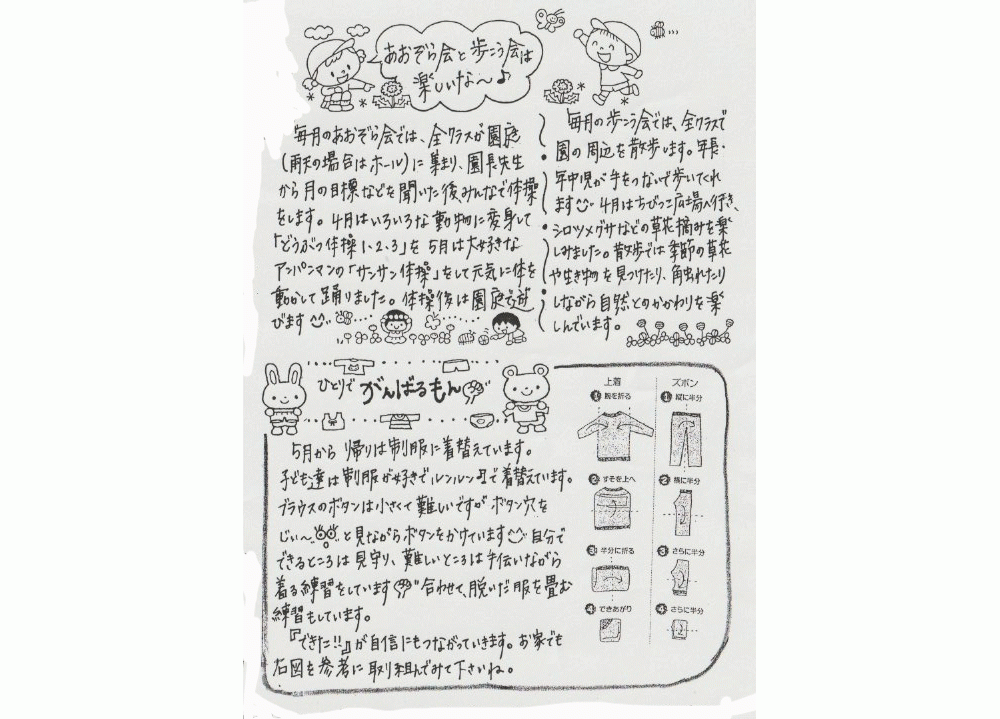 あおぞら会と歩こう会は
楽しいな～♪
毎月のあおぞら会では、全クラスが園庭
(雨天の場合はホール)に集まり、園長先生
から月の目標などを聞いた後、みんなで体操
をします。4月はいろいろな動物に変身して
「どうぶつ体操1・2・3」を5月は大好きな
アンパンマンの「サンサン体操」をして元気に体を
動かして踊りました。体操後は園庭で遊
びます
毎月の歩こう会では、全クラスで
園の周辺を散歩します。年長・
年中児が手をつないで歩いてくれ
ます 4月はちびっこ広場へ行き、
シロツメグサなどの草花摘みを楽
しみました。散歩では季節の草花
や生き物を見つけたり、触れたり
しながら自然とのかかわりを楽
しんでいます。
ひとりで がんばるもん
5月から帰りは制服に着替えています。
子ども達は制服が好きでルンルン♪で着替えています。
ブラウスのボタンは小さくて難しいですがボタン穴を
じぃ～っと見ながらボタンをかけています 自分で
できるところは見守り、難しいところは手伝いながら
着る練習をしています 合わせて、脱いだ服を畳む
練習もしています。
『できた!!』が自信にもつながっていきます。お家でも
右図を参考に取り組んでみて下さいね。
上着
1 腕を折る
2 すそを上へ
3 半分に折る
4 できあがり
ズボン
1 縦に半分
2 横に半分
3 さらに半分
4 さらに半分